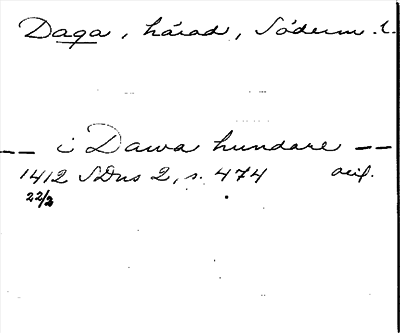 Daga, härad, Söderm. l.
-- i Dawa hundare --
1412 SDns 2, s. 474 avif.
22/2